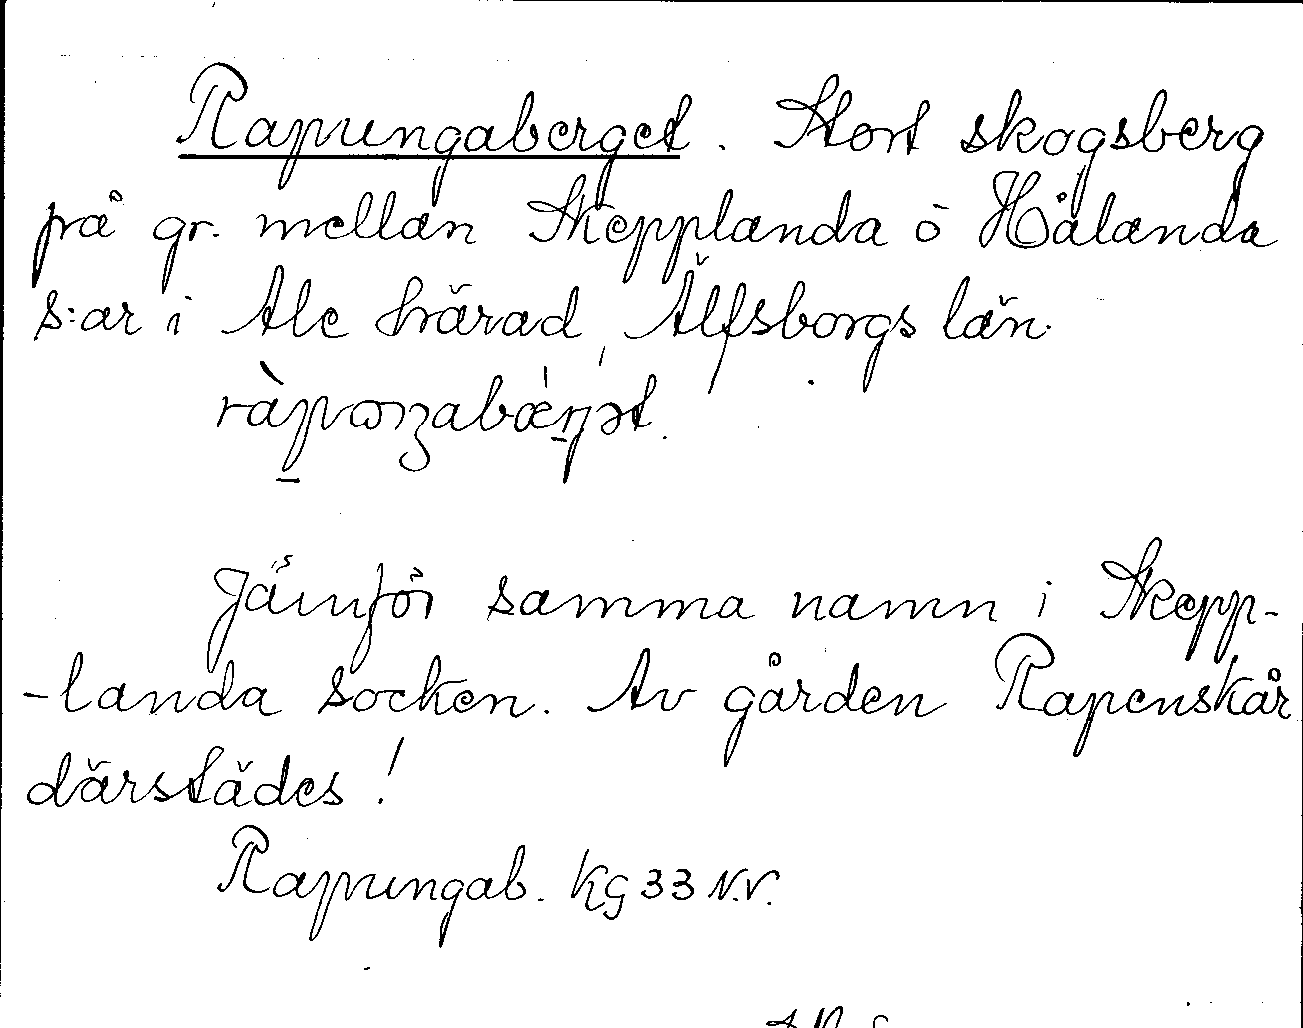 Rapungaberget. Stort skogsberg
på gr. mellan Skepplanda o Hålanda
s:ar i Ale härad, Älfsborgs län.
Jämför samma namn i Skepp-
-landa socken. Av gården Rapenskår
därstädes!
Rapungab. KG 33 N.V.